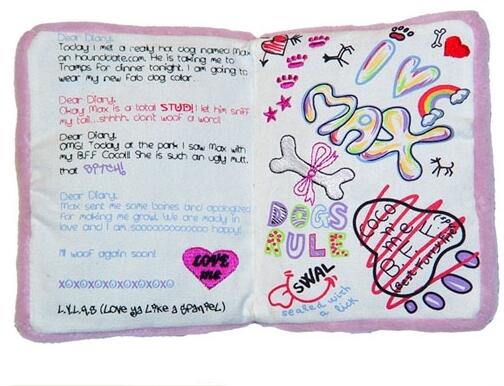 Dear Diary,
Today I met a really hot dog named Max
on hounddate.com. He is taking me to
Tramps for dinner tonight. I am going to
wear my new fab dog collar...
Dear Diary,
Okay Max is a total STUD! I let him sniff
my tail...shhhh, dont woof a word!
Dear Diary,
OMG! Today at the park I saw Max with
my B.F.F Coco!! She is such an ugly mutt,
that BITCH!
Dear Diary,
Max sent me some bones and apologized
for making me growl. We are madly in
love and I am soooooooooooooo happy!
I'll woof again soon!
XOXOXOXOXOXOXOXO
L.Y.L.A.S (Love ya Like a Spaniel)
LOVE
me
I
MAX
DOGS
RULE
SWAL
sealed with
a lick
COCO
n me
B.F.F.
(Best Fur-ry Friend)